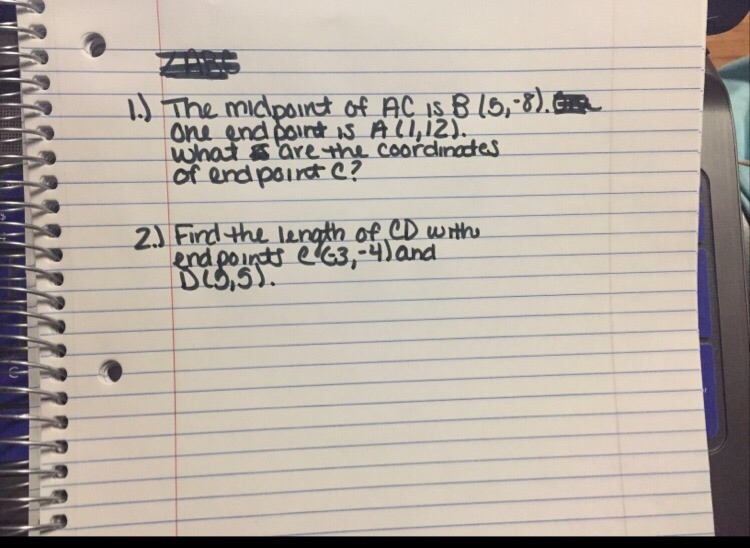 1.) The midpoint of AC is B(5,-8).
One endpoint is A(1,12).
What are the coordinates
of endpoint C?
2.) Find the length of CD with
endpoints C(-3,-4) and
D(5,5).